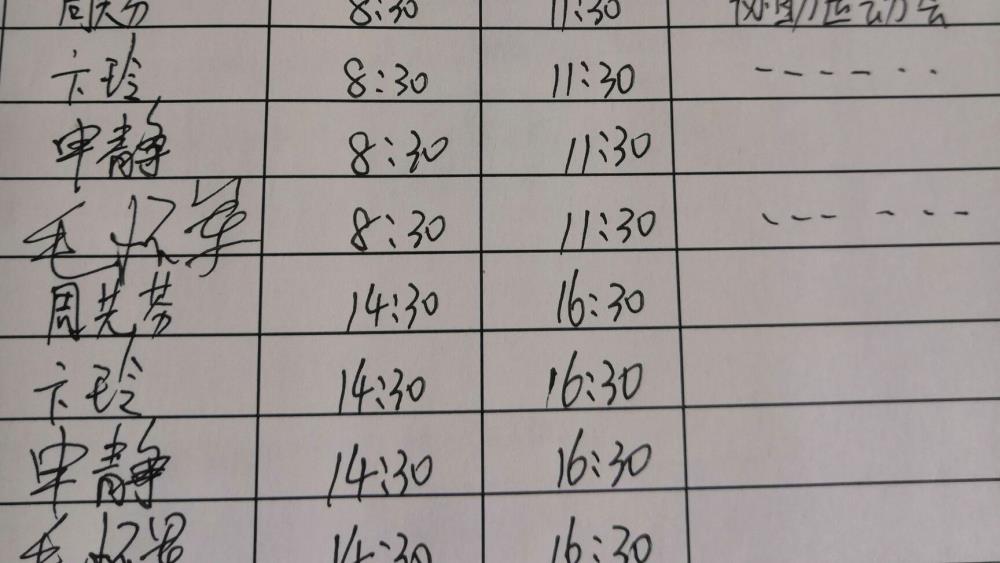 8:30 11:30
卞玲 8:30 11:30
申静 8:30 11:30
毛 8:30 11:30
周芙芬 14:30 16:30
卞玲 14:30 16:30
申静 14:30 16:30
毛 14:30 16:30